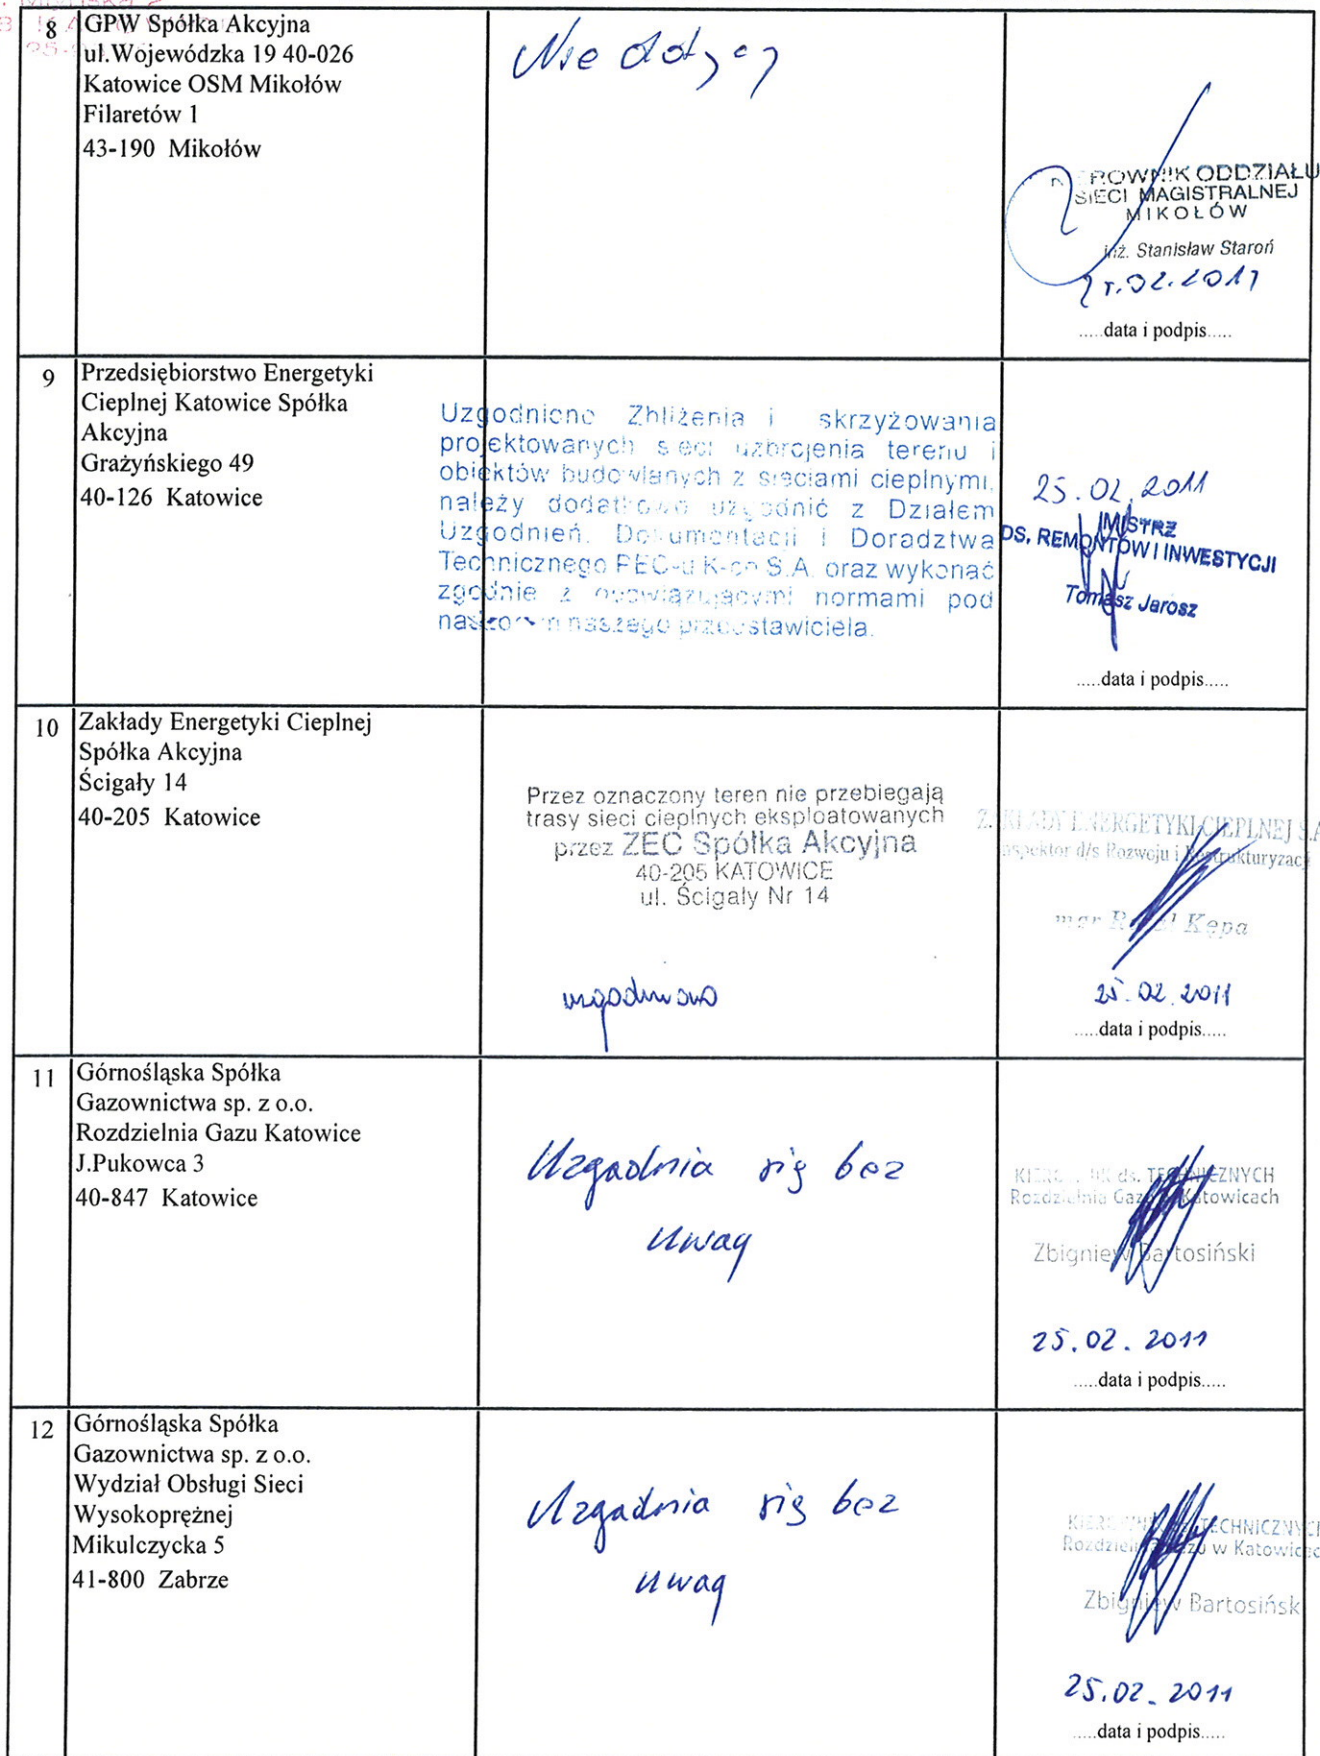 8
GPW Spółka Akcyjna
ul.Wojewódzka 19 40-026
Katowice OSM Mikołów
Filaretów 1
43-190 Mikołów
Nie dotyczy
ODDZIAŁU
SIECI MAGISTRALNEJ
MIKOŁÓW
inż. Stanisław Staroń
.02.2011
.....data i podpis.....
9
Przedsiębiorstwo Energetyki
Cieplnej Katowice Spółka
Akcyjna
Grażyńskiego 49
40-126 Katowice
Uzgodniono Zbliżenia i skrzyżowania
projektowanych sieci uzbrojenia terenu i
obiektów budowlanych z sieciami cieplnymi,
należy dodatkowo uzgodnić z Działem
Uzgodnień, Dokumentacji i Doradztwa
Technicznego PEC-u K-ce S.A. oraz wykonać
zgodnie z obowiązującymi normami pod
naszego przedstawiciela.
25.02.2011
MISTRZ
DS. REMONTÓW I INWESTYCJI
Tomasz Jarosz
.....data i podpis.....
10
Zakłady Energetyki Cieplnej
Spółka Akcyjna
Ścigały 14
40-205 Katowice
Przez oznaczony teren nie przebiegają
trasy sieci cieplnych eksploatowanych
przez ZEC Spółka Akcyjna
40-205 KATOWICE
ul. Ścigały Nr 14
uzgodniono
ZAKŁADY ENERGETYKI CIEPLNEJ S.A
Inspektor d/s Rozwoju i Restrukturyzacji
mgr Rafał Kępa
25.02.2011
.....data i podpis.....
11
Górnośląska Spółka
Gazownictwa sp. z o.o.
Rozdzielnia Gazu Katowice
J.Pukowca 3
40-847 Katowice
Uzgadnia się bez
uwag
KIEROWNIK ds. TECHNICZNYCH
Rozdzielnia Gazu w Katowicach
Zbigniew Bartosiński
25.02.2011
.....data i podpis.....
12
Górnośląska Spółka
Gazownictwa sp. z o.o.
Wydział Obsługi Sieci
Wysokoprężnej
Mikulczycka 5
41-800 Zabrze
Uzgadnia się bez
uwag
KIEROWNIK ds. TECHNICZNYCH
Rozdzielnia Gazu w Katowicac
Zbigniew Bartosińsk
25.02.2011
.....data i podpis.....